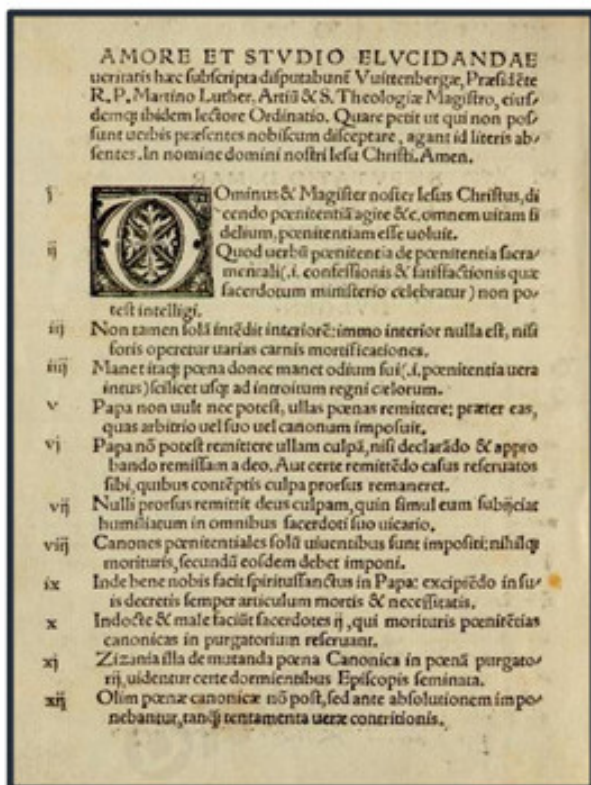 AMORE ET STVDIO ELVCIDANDAE
ueritatis hæc subscripta disputabunť Vuittenbergæ, Præsidēte
R. P. Martino Luther, Artiū & S. Theologiæ Magistro, eius-
demq; ibidem lectore Ordinatio. Quare petit ut qui non pos-
sunt uerbis præsentes nobiscum disceptare, agant id literis ab-
sentes. In nomine domini nostri Iesu Christi. Amen.
j DOminus & Magister noster Iesus Christus, di
cendo pœnitentiā agite &c. omnem uitam fi
delium, pœnitentiam esse uoluit.
ij Quod uerbū pœnitentia de pœnitentia sacra-
mentali(.i. confessionis & satisfactionis quæ
sacerdotum ministerio celebratur) non po-
test intelligi.
iij Non tamen solā intēdit interiorē: immo interior nulla est, nisi
foris operetur uarias carnis mortificationes.
iiij Manet itaq; pœna donec manet odium sui(.i. pœnitentia uera
intus) scilicet usq; ad introitum regni cælorum.
v Papa non uult nec potest, ullas pœnas remittere: præter eas,
quas arbitrio uel suo uel canonum imposuit.
vj Papa nō potest remittere ullam culpā, nisi declarādo & appro
bando remissam a deo. Aut certe remittēdo casus reseruatos
sibi, quibus contēptis culpa prorsus remaneret.
vij Nulli prorsus remittit deus culpam, quin simul eum subijciat
humiliatum in omnibus sacerdoti suo uicario.
viij Canones pœnitentiales solū uiuentibus sunt impositi: nihilq;
morituris, secundū eosdem debet imponi.
ix Inde bene nobis facit spiritussanctus in Papa: excipiēdo in su-
is decretis semper articulum mortis & necessitatis.
x Indocte & male faciūt sacerdotes ij, qui morituris pœnitētias
canonicas in purgatorium reseruant.
xj Zizania illa de mutanda pœna Canonica in pœnā purgato-
rij, uidentur certe dormientibus Episcopis seminata.
xij Olim pœnæ canonicæ nō post, sed ante absolutionem impo-
nebantur, tanq̃ tentamenta ueræ contritionis.